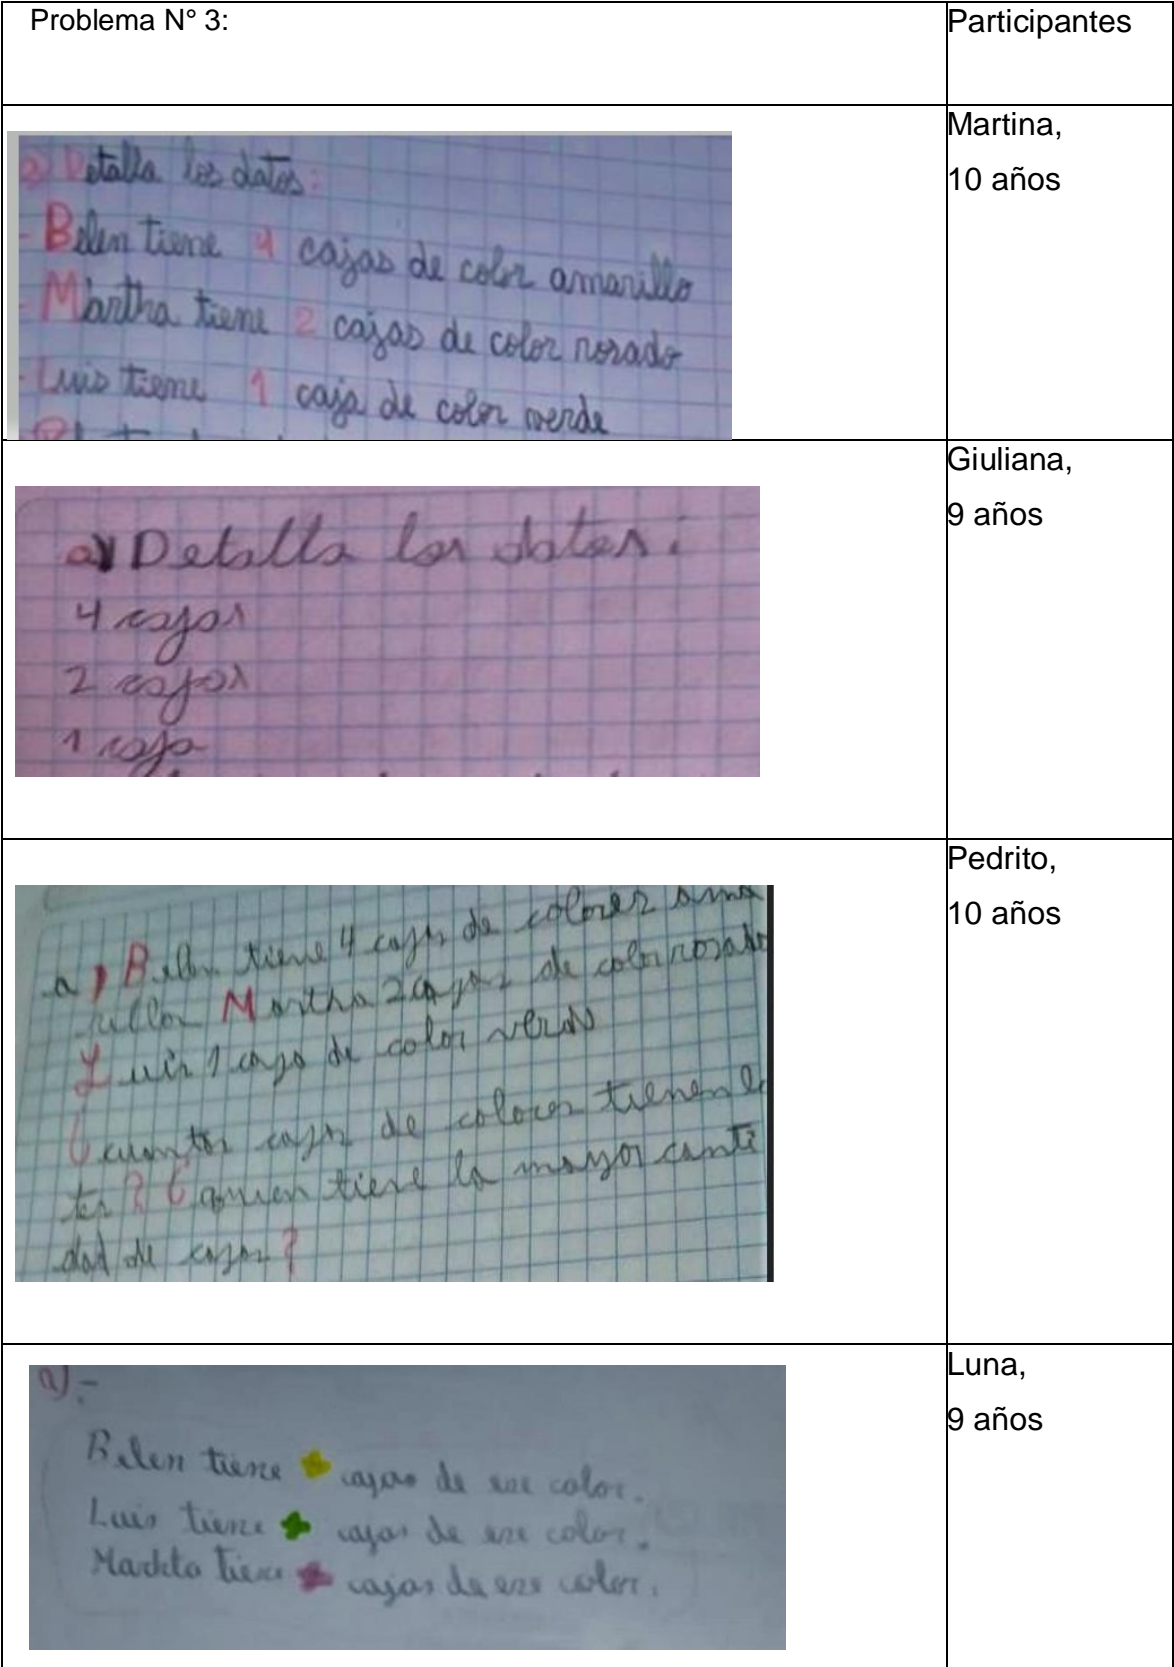 Problema N° 3:
Participantes
a) Detalla los datos:
- Belen tiene 4 cajas de color amarillo
- Martha tiene 2 cajas de color rosado
- Luis tiene 1 caja de color verde
Martina,
10 años
a) Detalla los datos:
4 cajas
2 cajas
1 caja
Giuliana,
9 años
a) Belen tiene 4 cajas de colores ama
rillos Martha 2 cajas de color rosado
Luis 1 caja de color verde
¿cuantos cajas de colores tienen e
tes? ¿quien tiene la mayor canti
dad de cajas?
Pedrito,
10 años
a).-
Belen tiene cajas de ese color.
Luis tiene cajas de ese color.
tiene cajas de ese color.
Luna,
9 años